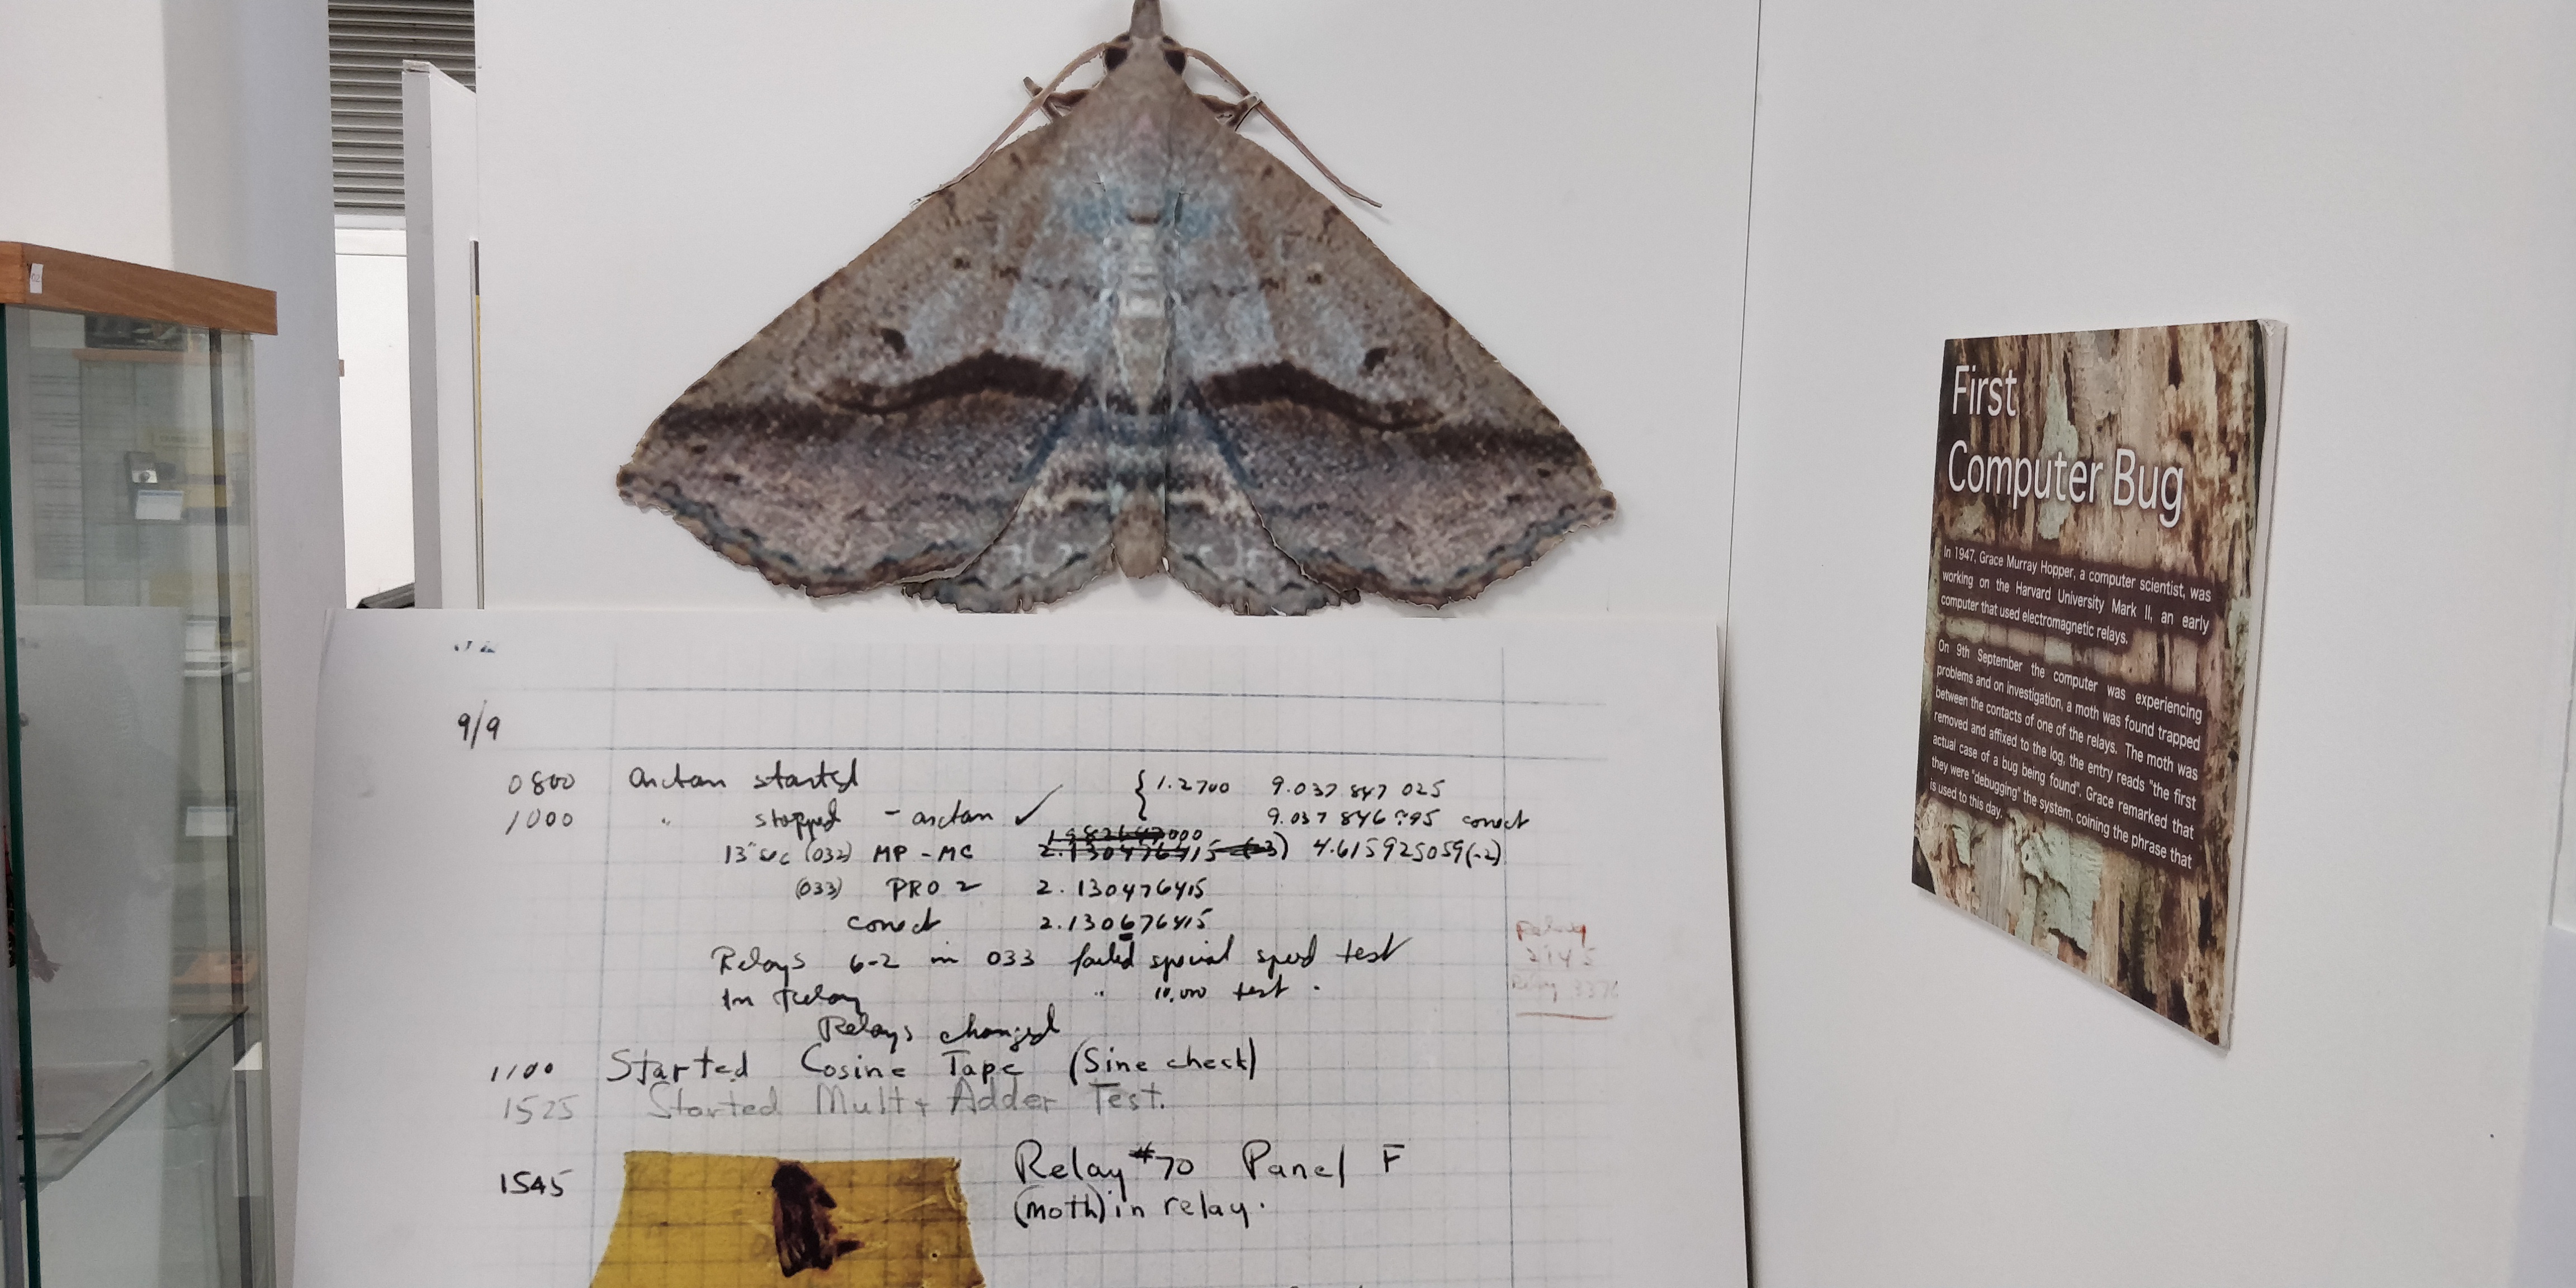 9/9
0800 arctan started { 1.2700 9.037 847 025
1000 " stopped - arctan ✓ 9.037 846 795 correct
13" sec (032) MP - MC 2.130476415 (-3) 4.615925059(-2)
(033) PRO 2 2.130476415
correct 2.130676415
Relays 6-2 in 033 failed special speed test
In Relay " 10,000 test .
Relays changed
Relay
2145
Relay 3370
1100 Started Cosine Tape (Sine check)
1525 Started Mult + Adder Test.
1545 Relay #70 Panel F
(moth) in relay.
First
Computer Bug
In 1947, Grace Murray Hopper, a computer scientist, was
working on the Harvard University Mark II, an early
computer that used electromagnetic relays.
On 9th September the computer was experiencing
problems and on investigation, a moth was found trapped
between the contacts of one of the relays. The moth was
removed and affixed to the log, the entry reads "the first
actual case of a bug being found". Grace remarked that
they were "debugging" the system, coining the phrase that
is used to this day.